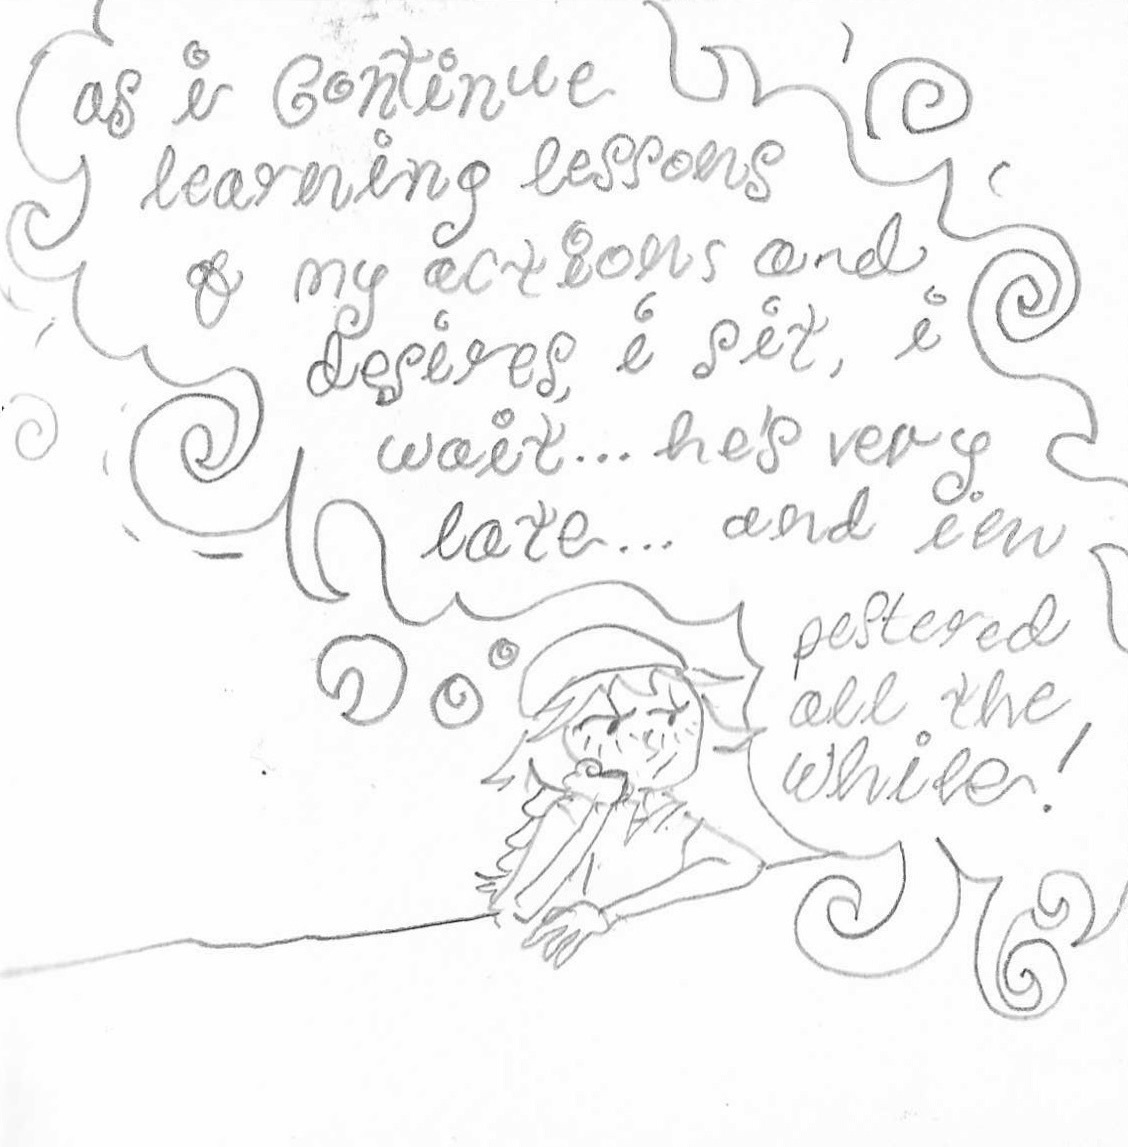 as i continue
learning lessons
of my actions and
desires, i sit, i
wait... he's very
late... and i'm
pestered
all the
while!